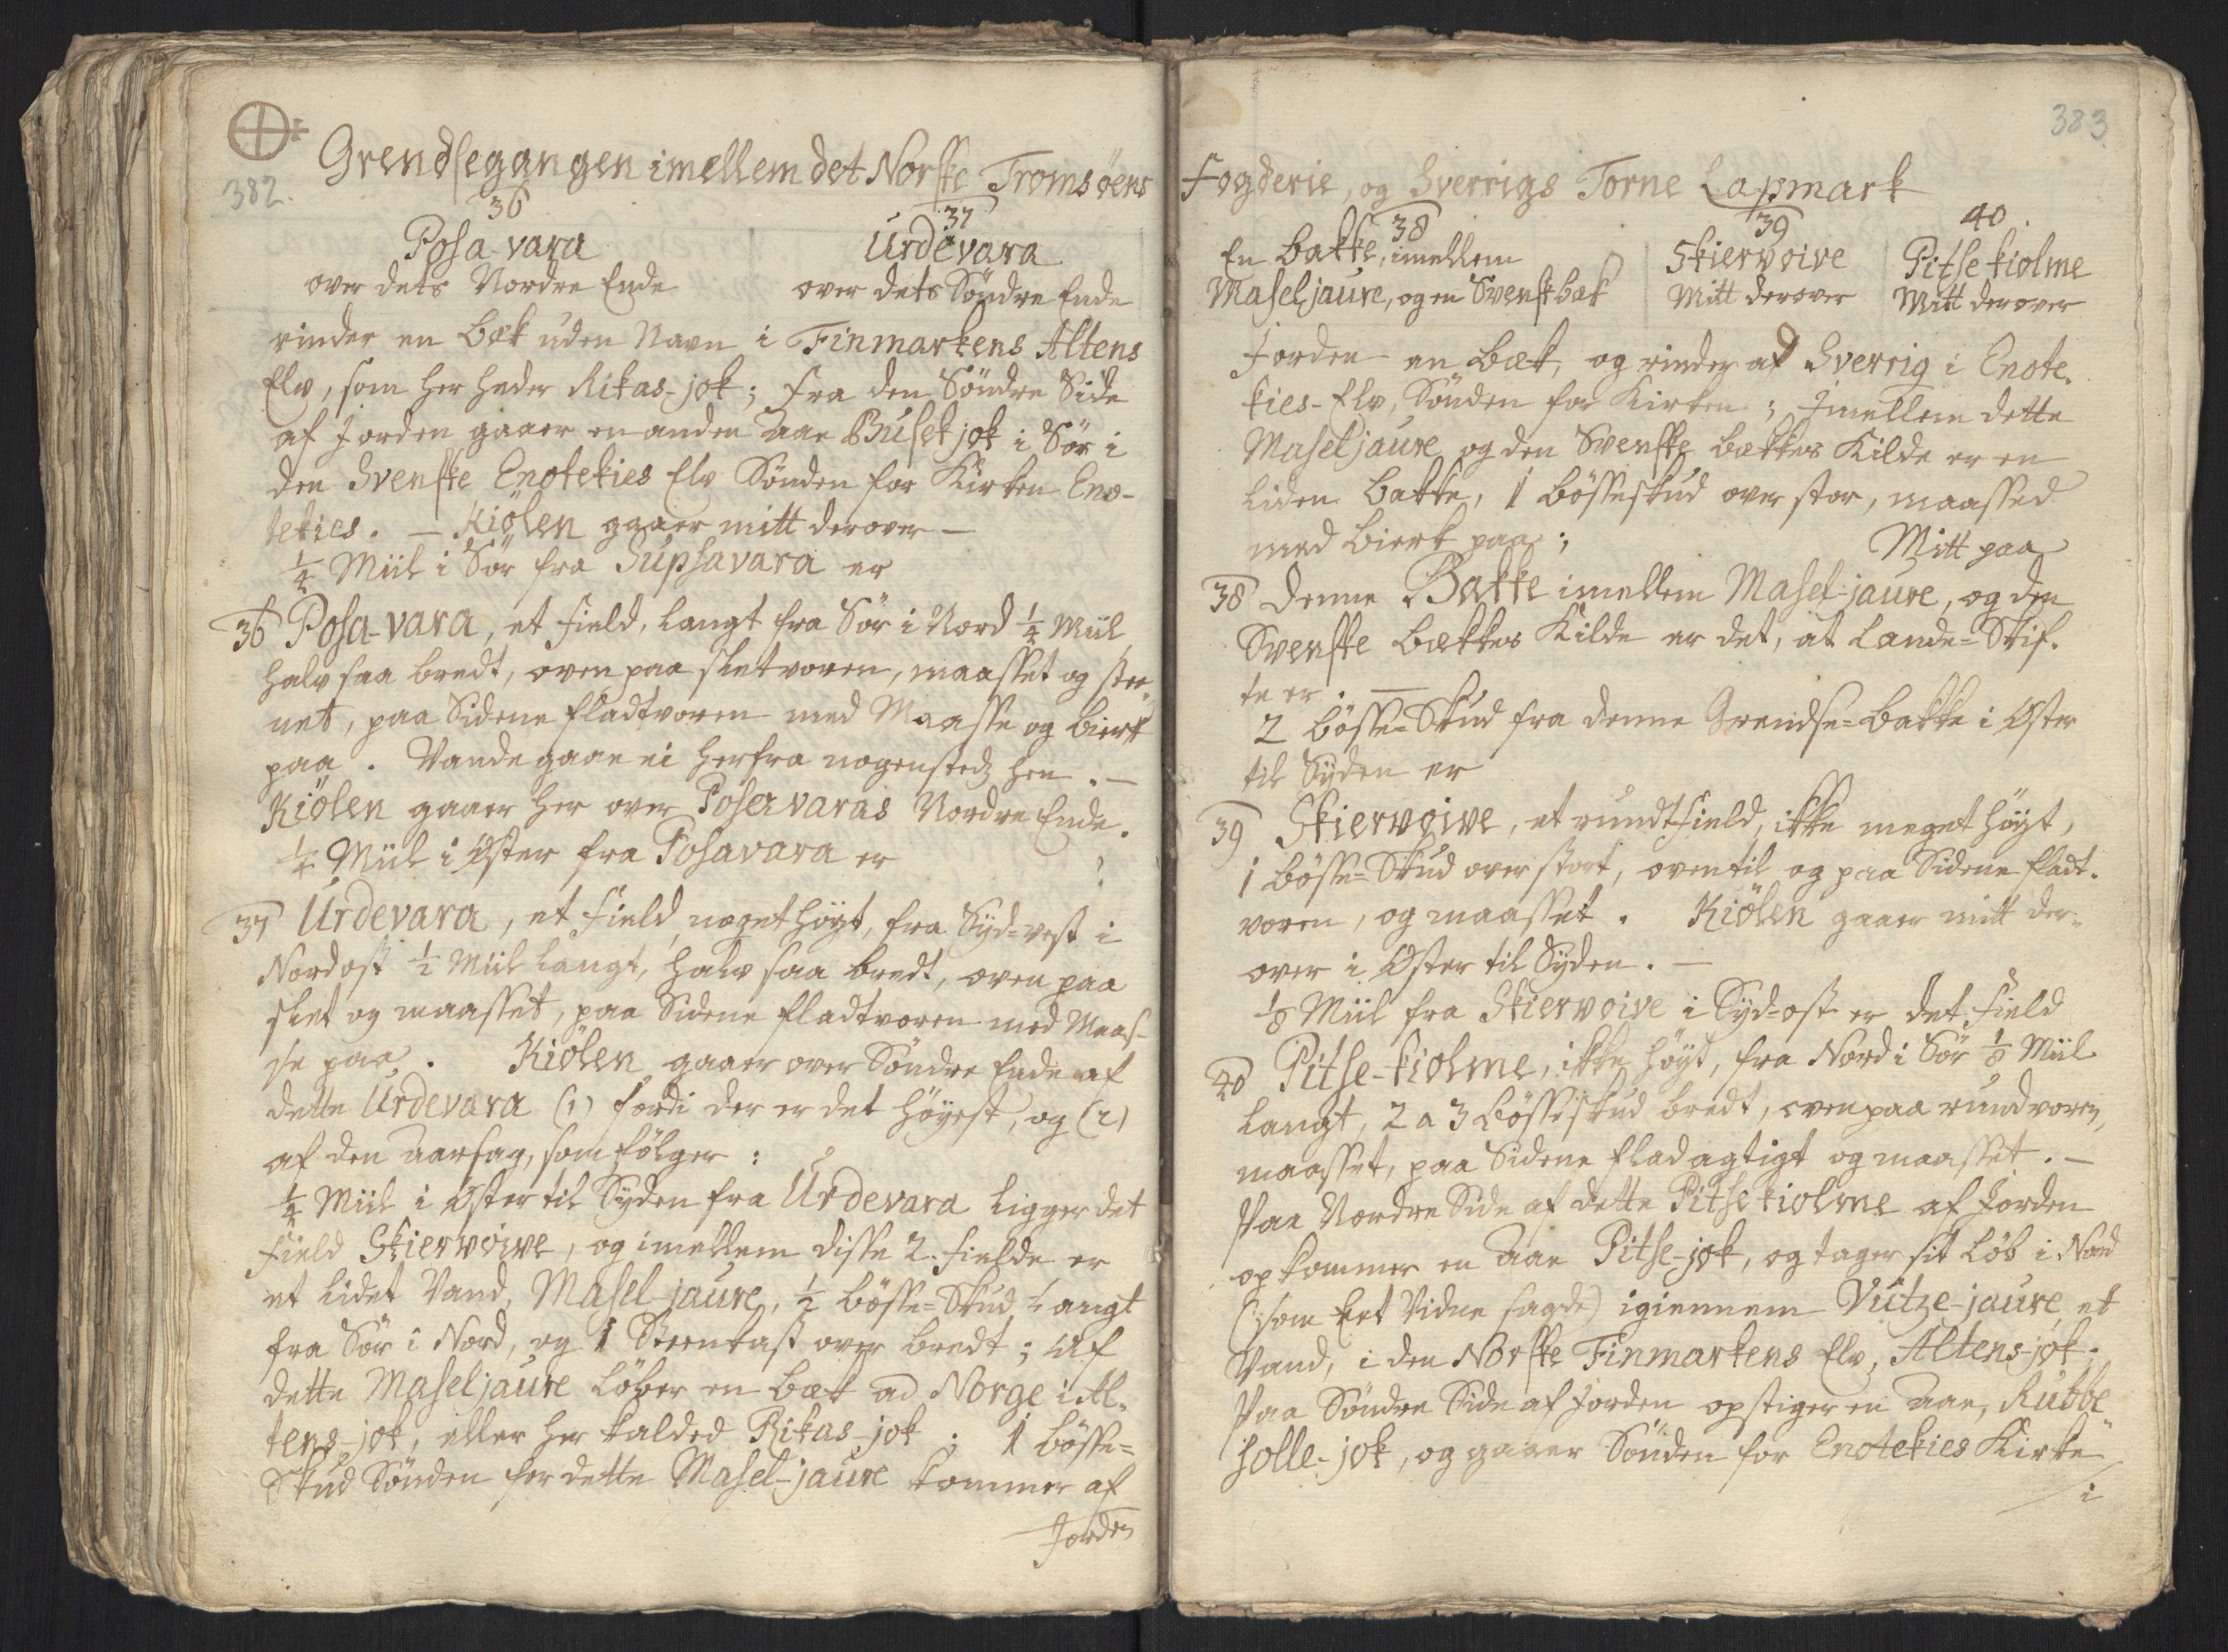 382.
Grendsegangen imellem det Norske Tromsöens
36
Posa-vara
over dets Nordre Ende
37
Urdevara
over dets Söndre Ende
rinder en Bæk uden Navn i Finmarkens Altens
Elv, som her heder Rikas-jok; fra den Söndre Side
af Jorden gaaer en anden Aae Busekjok i Sör i
den Svenske Enotekies Elv Sönden for Kirken Eno-
tekies. — Kiölen gaaer mitt derover —
¼ Miil i Sör fra Supsavara er
36 Posa-vara, et Field, langt fra Sör i Nord ¼ Miil
halv saa bredt, oven paa sletvoren, maasset og stee-
net, paa Sidene fladtvoren med Maasse og Bierk
paa. Vande gaae ei herfra nogenstedz hen. —
Kiölen gaaer her over Posavaras Nordre Ende.
¼ Miil i Öster fra Posavara er
37 Urdevara, et Field noget höyt, fra Syd-vest i
Nordost ½ Miil langt, halv saa bredt, oven paa
slet og maasset, paa Sidene fladtvoren med Maas-
se paa. Kiölen gaaer over Söndre Ende af
dette Urdevara (1) fordi der er det höyest, og (2)
af den Aarsag, som fölger:
¼ Miil i Öster til Syden fra Urdevara ligger det
Field Skiervoive, og imellem disse 2. Fielde er
et lidet Vand, Masel-jaure, ½ bösse-Skud langt
fra Sör i Nord, og 1 Steenkast over bredt; Af
dette Maseljaure löber en Bæk ad Norge i Al-
tens-jok, eller her kalded Rikas-jok; 1 bösse-
Skud Sönden for dette Masel-jaure kommer af
Jorden
383
Fogderie, og Sverrigs Torne Lapmark
38
En Bakke, imellem
Maseljaure, og en Svensk bæk
39
Skiervoive
Mitt derover
40.
Pitse kiolme
Mitt derover
Jorden en Bæk, og rinder af Sverrig i Enote-
kies-Elv, Sönden for Kirken; Imellem dette
Maseljaure og den Svenske Bækkes Kilde er en
liden Bakke, 1 bösseskud over stor, maassed
med Bierk paa; Mitt paa
38 Denne Bakke imellem Masel-jaure, og den
Svenske Bækkes Kilde er det, at Lande-Skif-
te er. —
2 bösse-Skud fra denne Grendse-Bakke i Öster
til Syden er
39 Skiervoive, et rundt Field, ikke meget höyt,
1 bösse-Skud over stort, oventil og paa Sidene fladt-
voren, og maasset. Kiölen gaaer mitt der-
over i Öster til Syden. —
⅛ Miil fra Skiervoive i Syd-ost er det Field
40 Pitse-kiolme, ikke höyt, fra Nord i Sör ⅛ Miil
langt, 2 a 3 bösseskud bredt, ovenpaa rundvoren,
maasset, paa Sidene flad agtigt og maasset. —
Paa Nordre Side af dette Pitse kiolme af Jorden
opkommer en Aae Pitse-jok, og tager sit Löb i Nord
(: som Eet Vidne sagde) igiennem Vutze-jaure, et
Vand, i den Norske Finmarkens Elv, Altens-jok.
Paa Söndre Side af Jorden opstiger en Aae, Rubbe
jolle-jok, og gaaer Sönden for Enotekies Kirke
i